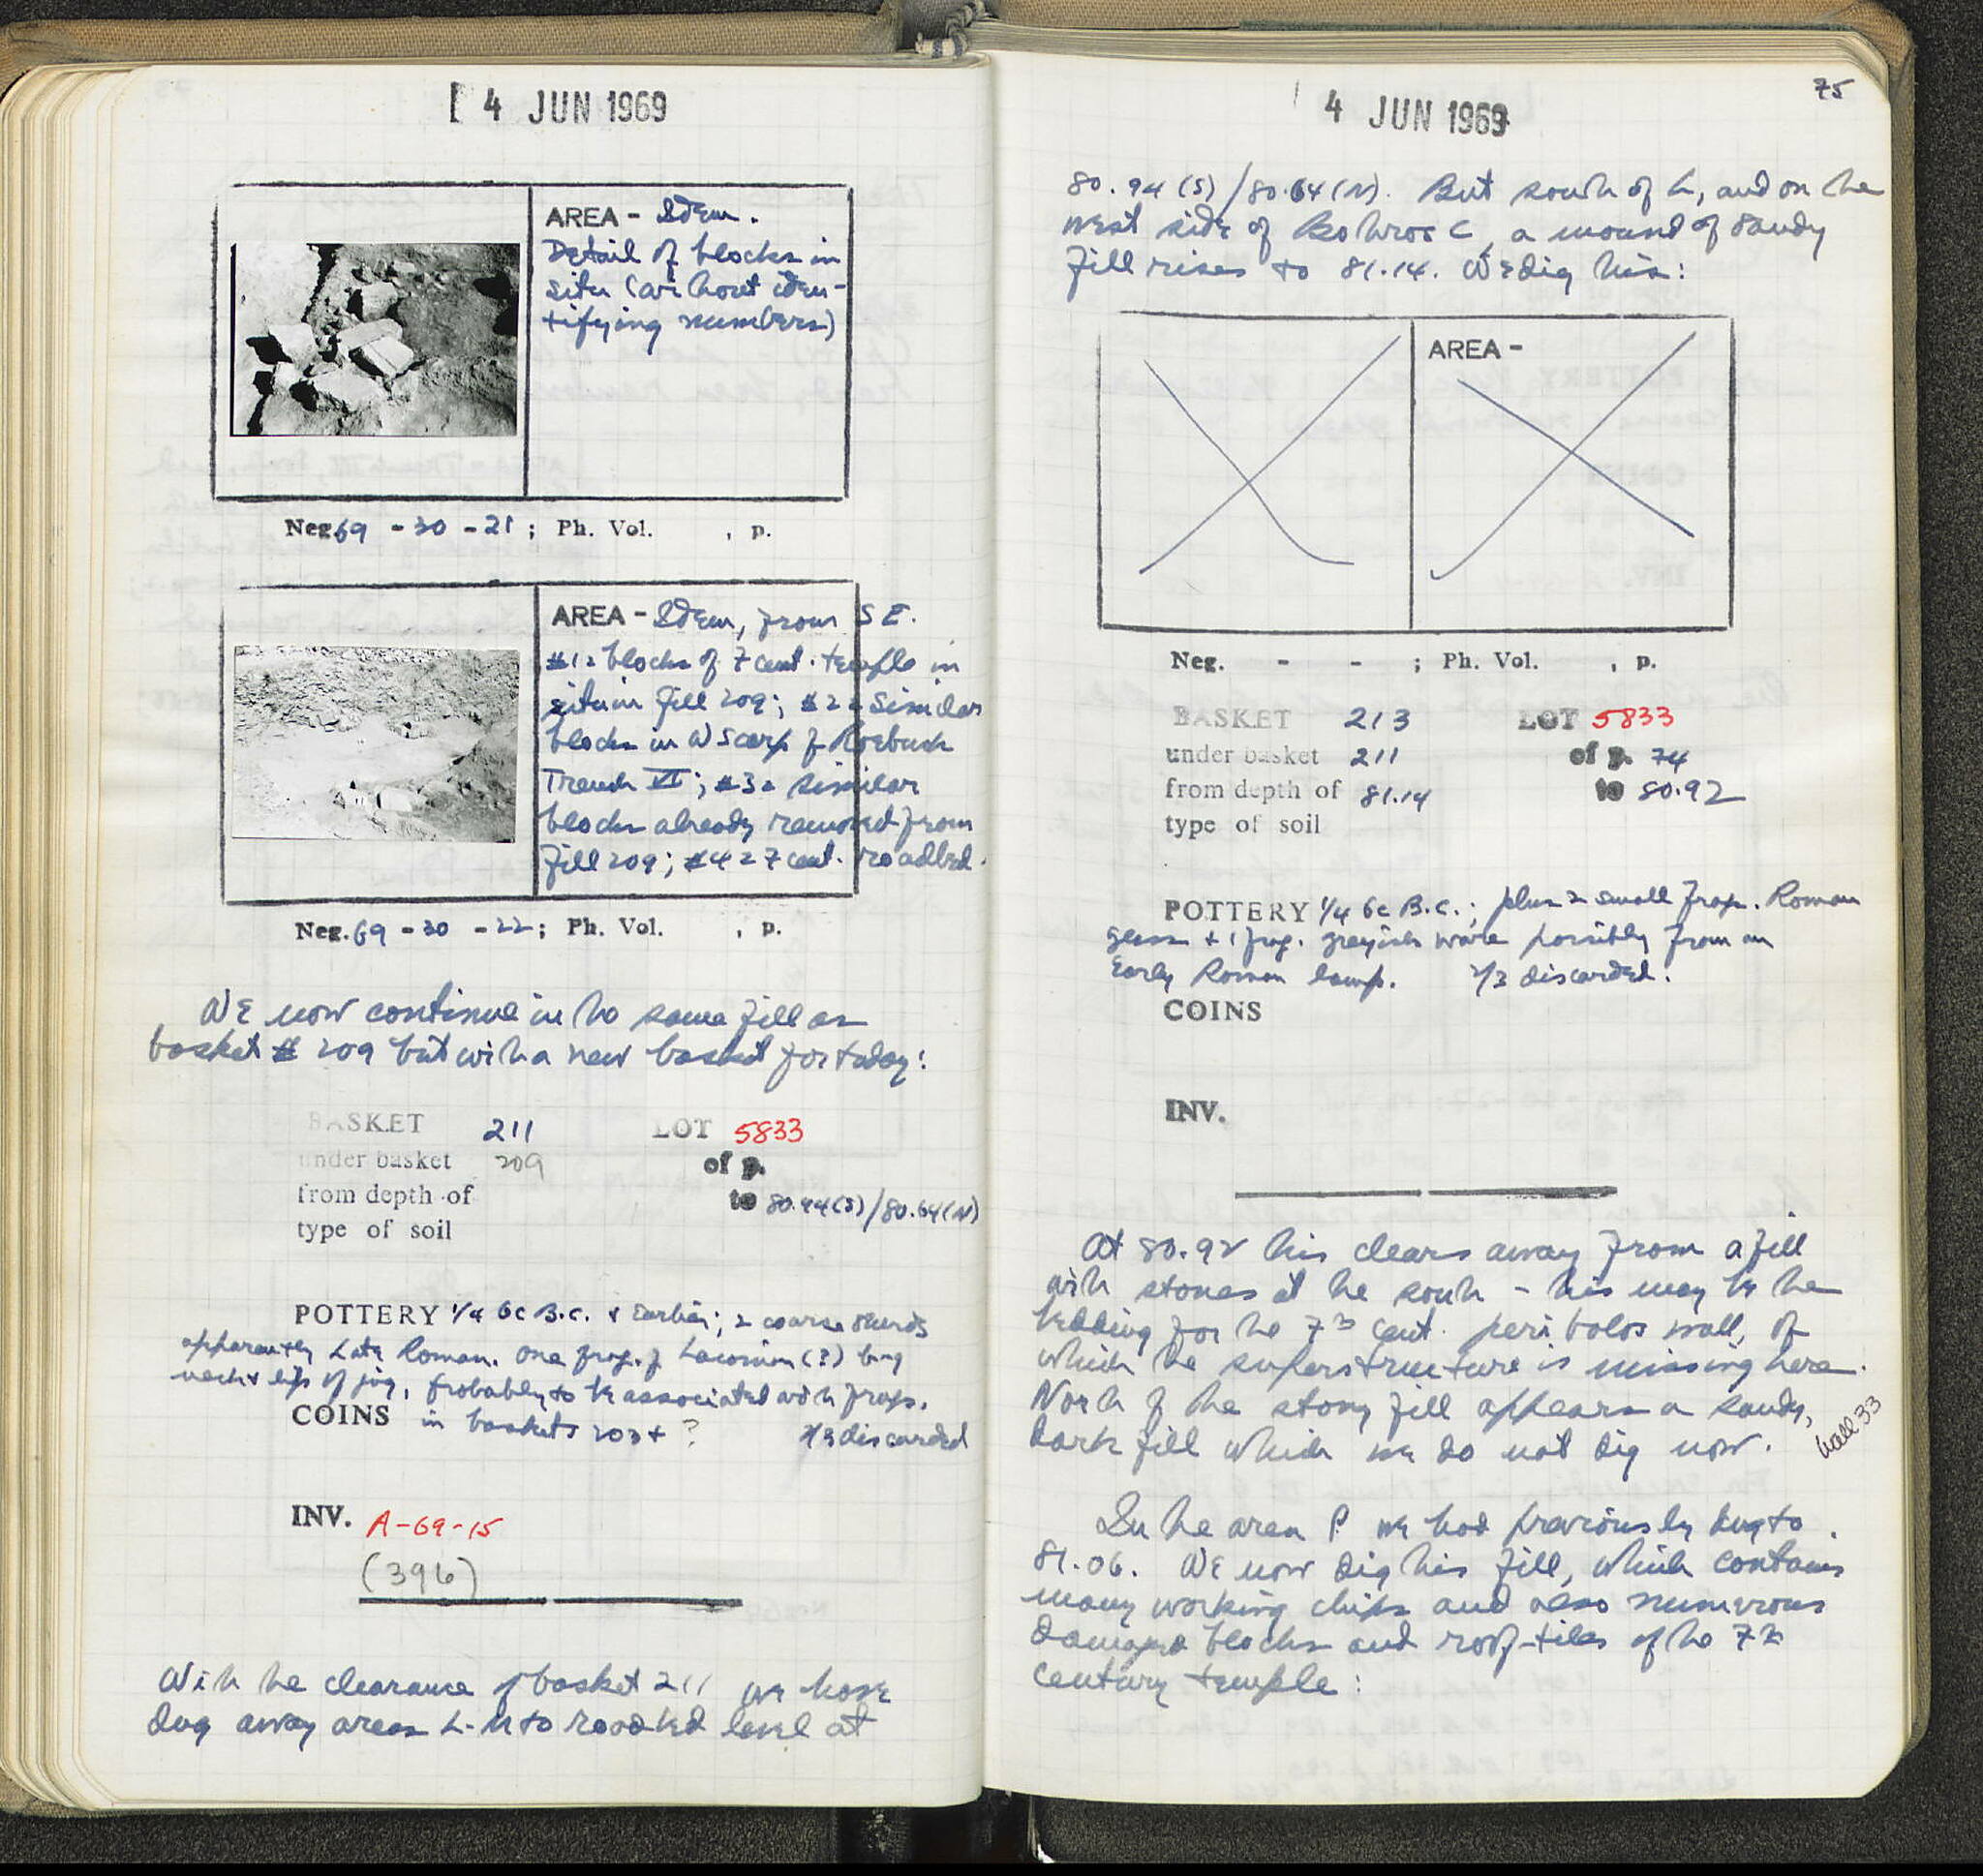 4 JUN 1969
AREA - Idem.
Detail of blocks in
situ (without iden-
tifying numbers)
Neg. 69 - 30 - 21 ; Ph. Vol. , p.
AREA - Idem, from SE.
#1 = blocks of 7 cent. temple in
situ in fill 209; #2 = similar
blocks in W scarp of Roebuck
Trench VI; #3 = similar
blocks already removed from
fill 209; #4 = 7 cent. roadbed.
Neg. 69 - 30 - 22 ; Ph. Vol. , p.
We now continue in the same fill as
basket # 209 but with a new basket for today:
BASKET 211 LOT 5833
under basket 209 of p.
from depth of to 80.94(S)/80.64(N)
type of soil
POTTERY 1/4 6c B.C. & Earlier; 2 coarse sherds
apparently Late Roman. One frag. of Laconian (?) bug
neck & lip of jug, probably to be associated with frags.
COINS in baskets 203 + ? 2/3 discarded
INV. A-69-15
(396)
With the clearance of basket 211 we have
dug away areas L-M to roadbed level at
4 JUN 1969
75
80.94 (S) / 80.64 (N). But south of L, and on the
west side of Bothros C, a mound of sandy
fill rises to 81.14. We dig this:
AREA -
Neg. - - ; Ph. Vol. , p.
BASKET 213 LOT 5833
under basket 211 of p. 74
from depth of 81.14 to 80.92
type of soil
POTTERY 1/4 6c B.C.; plus 2 small frags. Roman
glass + 1 frag. greyish ware possibly from an
Early Roman lamp. 2/3 discarded.
COINS
INV.
At 80.92 this clears away from a fill
with stones at the south - this may be the
bedding for the 7th cent. peribolos wall, of
which the superstructure is missing here.
North of the stony fill appears a sandy,
dark fill which we do not dig now.
Wall 33
In the area P we had previously dug to
81.06. We now dig this fill, which contains
many working chips and also numerous
damaged blocks and roof-tiles of the 7th
century temple: